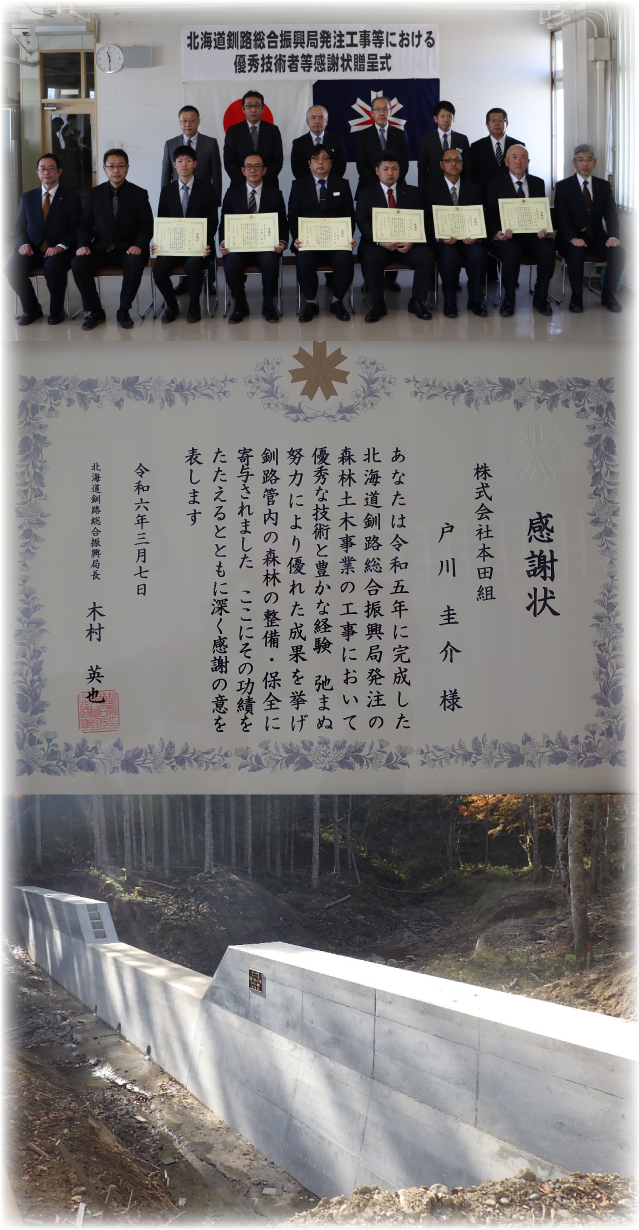 北海道釧路総合振興局発注工事等における
優秀技術者等感謝状贈呈式
感謝状
株式会社本田組
戸川圭介様
あなたは令和五年に完成した
北海道釧路総合振興局発注の
森林土木事業の工事において
優秀な技術と豊かな経験　弛まぬ
努力により優れた成果を挙げ
釧路管内の森林の整備・保全に
寄与されました　ここにその功績を
たたえるとともに深く感謝の意を
表します
令和六年三月七日
北海道釧路総合振興局長　木村　英也